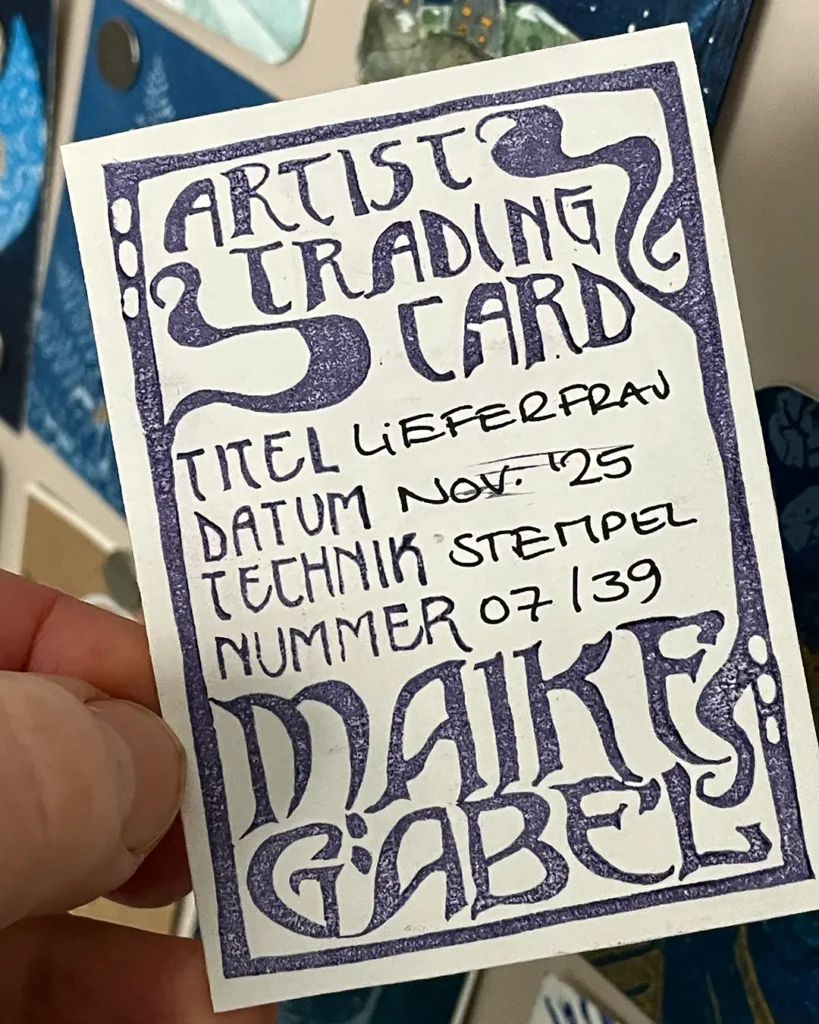 ARTIST
TRADING
CARD
TITEL LIEFERFRAU
DATUM NOV. '25
TECHNIK STEMPEL
NUMMER 07/39
MAIKE
GABEL